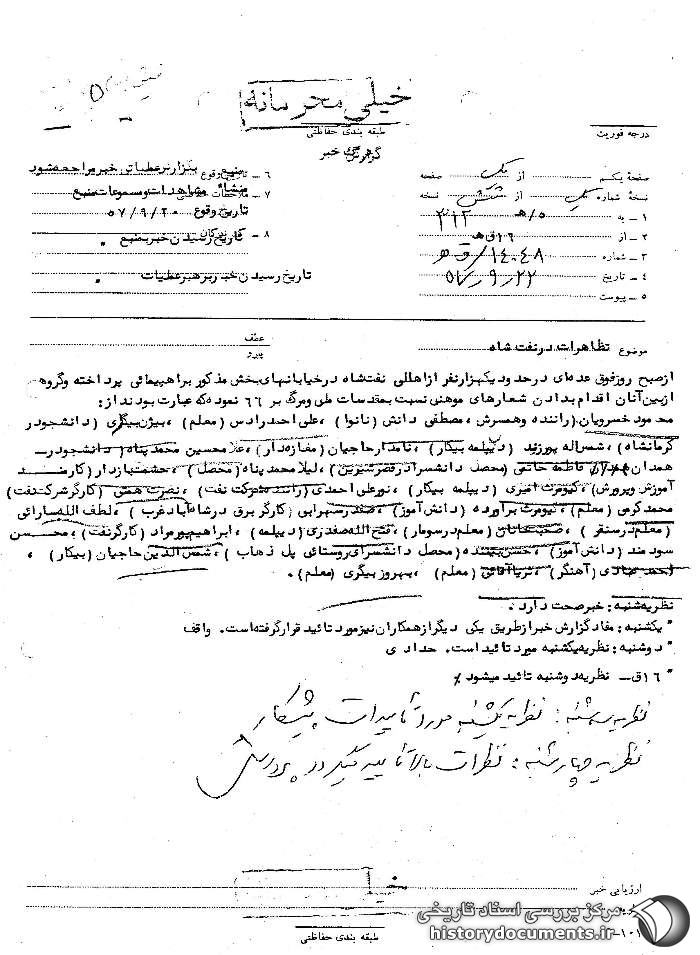 خیلی محرمانه
طبقه بندی حفاظتی
گزارش خبر
درجه فوریت
صفحه یکم از یک صفحه
نسخه شماره یک از شش نسخه
۱ – به ۳۱۲ / ۵هـ
۲ – از ۱۶ق هـ
۳ – شماره ۱۴۰۴۸/ق هـ
۴ – تاریخ ۵۷/۹/۲۲
۵ – پیوست
۶ – منبع بنزارنرعطیاتی خبر مراجعه شود
۷ – منشاء مشاهدات و مسموعات منبع
تاریخ وقوع ۵۷/۹/۲۰
۸ – تاریخ رسیدن خبر به منبع .
تاریخ رسیدن خبر برهبر عملیات .
موضوع تظاهرات در نفت شاه
عطف
پیرو
از صبح روز فوق عده‌ای در حدود یکهزار نفر از اهالی نفت‌شاه در خیابانهای بخش مذکور براهپیمائی پرداخته و گروهی
از بین آنان اقدام بدادن شعارهای موهنی نسبت بمقدسات ملی و مرگ بر ۶۶ نموده که عبارت بودند از :
محمود خسرویان (راننده و همسرش ، مصطفی دانش (نانوا) ، علی احدرادس (معلم) ، بیژن بیگری (دانشجو در
کرمانشاه) ، شمس اله پورزند (دیپلمه بیکار) ، نامدار حاجیان (مغازه‌دار) ، غلامحسین محمدپناه (دانشجو در
همدان) فاطمه حاتمی (محصل دانشسرا در قصرشیرین) ، لیلا محمدپناه (محصل) ، حشمت بازدار (کارمند
آموزش و پرورش) ، کیومرث امیری (دیپلمه بیکار) ، نورعلی احمدی (راننده شرکت نفت) ، نصرت همتی (کارگر شرکت نفت)
محمد کرمی (معلم) ، کیومرث برآورده (دانش‌آموز) ، صفدر سهرابی (کارگر برق در شاه‌آباد غرب) ، لطف الله یارائی
(معلم در سنقر) ، (معلم در سومار) ، فتح الله صفدری (دیپلمه) ، ابراهیم پورمراد (کارگر نفت) ، محسن
سودمند (دانش‌آموز) ، (محصل دانشسرای روستائی پل ذهاب) ، شمس‌الدین حاجیان (بیکار) ،
احمد عبادی (آهنگر) ، ثریا آقائی (معلم) ، بهروز بیگری (معلم) .
نظریه شنبه : خبر صحت دارد .
" یکشنبه : مفاد گزارش خبر از طریق یکی دیگر از همکاران نیز مورد تائید قرار گرفته است . واقف
" دوشنبه : نظریه یکشنبه مورد تائید است . حدادی
" ۱۶ق – نظریه دوشنبه تائید میشود
نظریه سه‌شنبه : نظریه یکشنبه مورد تأیید است پیشکار
نظریه چهارشنبه : نظرات بالا تأیید میگردد پرورش
ارزیابی خبر
طبقه بندی حفاظتی
۱۰۱-
مرکز بررسی اسناد تاریخی
historydocuments.ir